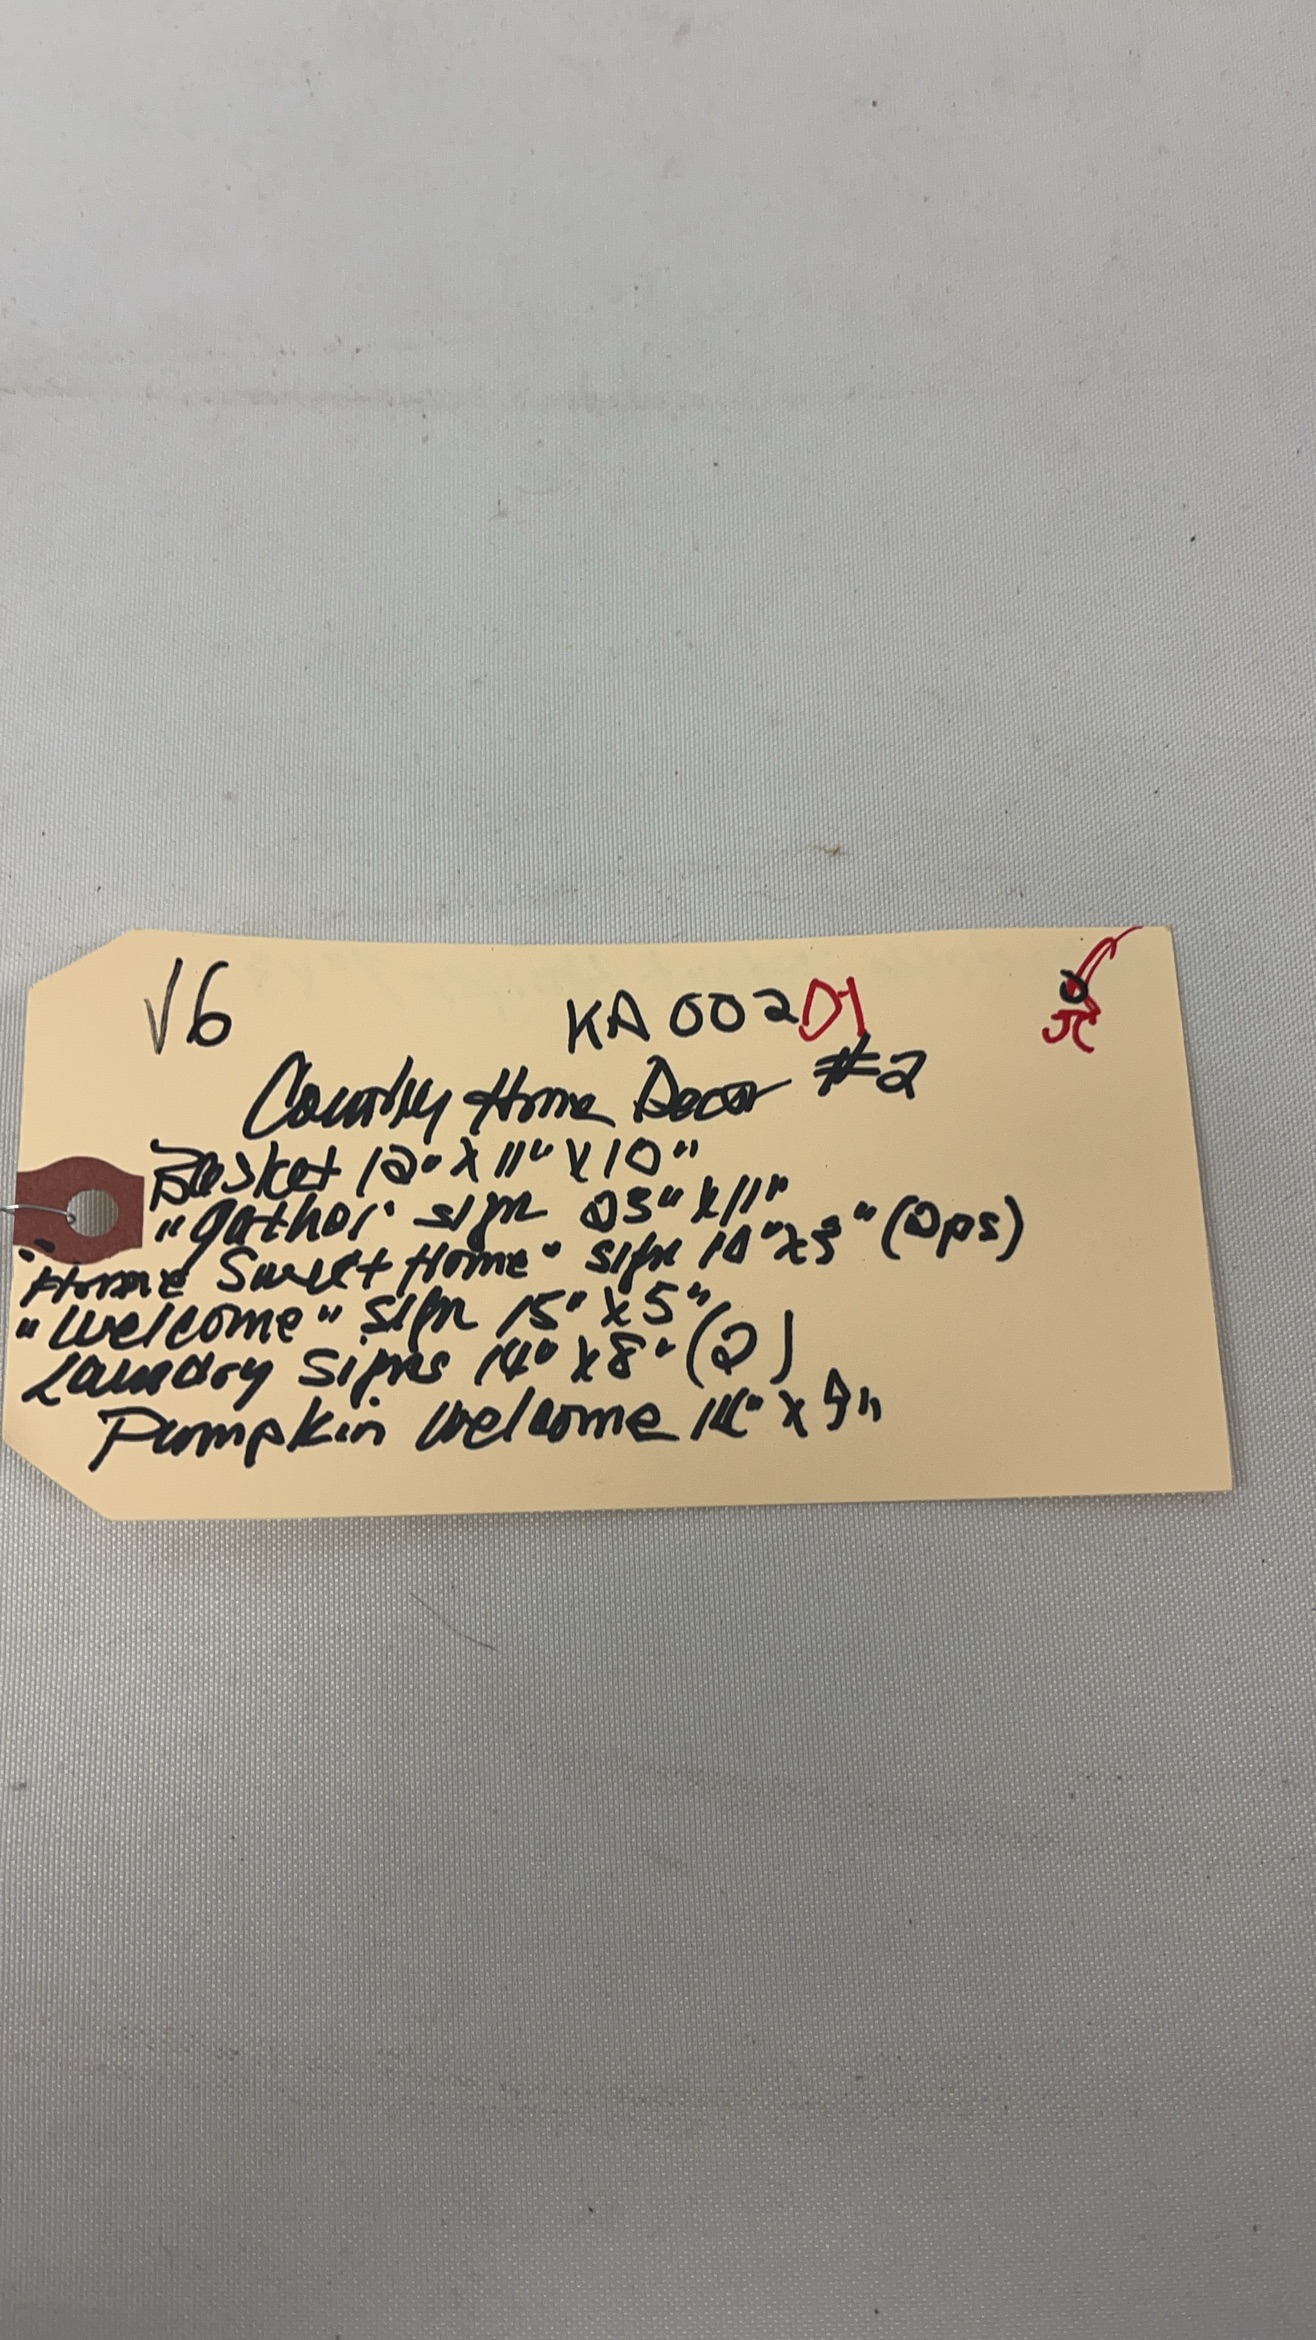 V6 KA00201
Country Home Decor #2
Basket 12" x 11" x 10"
"Gather" sign 23" x 11"
"Home Sweet Home" sign 10" x 3" (2ps)
"Welcome" sign 15" x 5"
Laundry signs 14" x 8" (2)
Pumpkin Welcome 14" x 9"